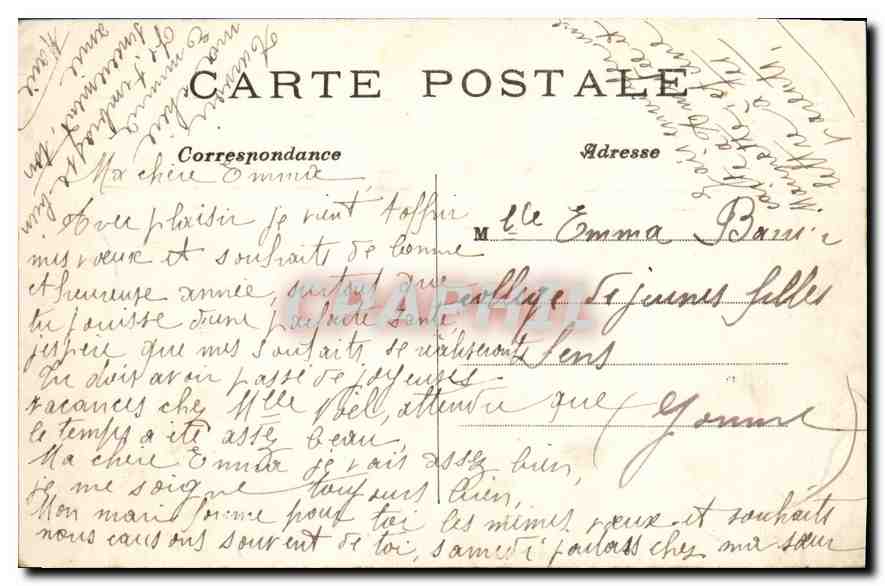 CARTE POSTALE
Correspondance
Adresse
Ma chère Emma,
Avec plaisir je vient t'offrir
mes vœux et souhaits de bonne
et heureuse année, surtout que
tu jouisse d'une parfaite santé,
j'espère que mes souhaits se réaliseront
Tu doit avoir passé de joyeuses
vacances chez Mlle Noël, attendu que
le temps a été assez beau.
Ma chère Emma je vais assez bien,
je me soigne toujours bien,
Mon mari forme pour toi les mêmes vœux et souhaits
nous causons souvent de toi, samedi chez ma sœur
Mlle Emma
collège de jeunes filles
Sens
(Yonne)
Marguerite
lettre à tes
parents,
Au revoir
ma chère
Emma
Je t'embrasse bien
sincèrement, ton
amie
Marie
CPAPHIL